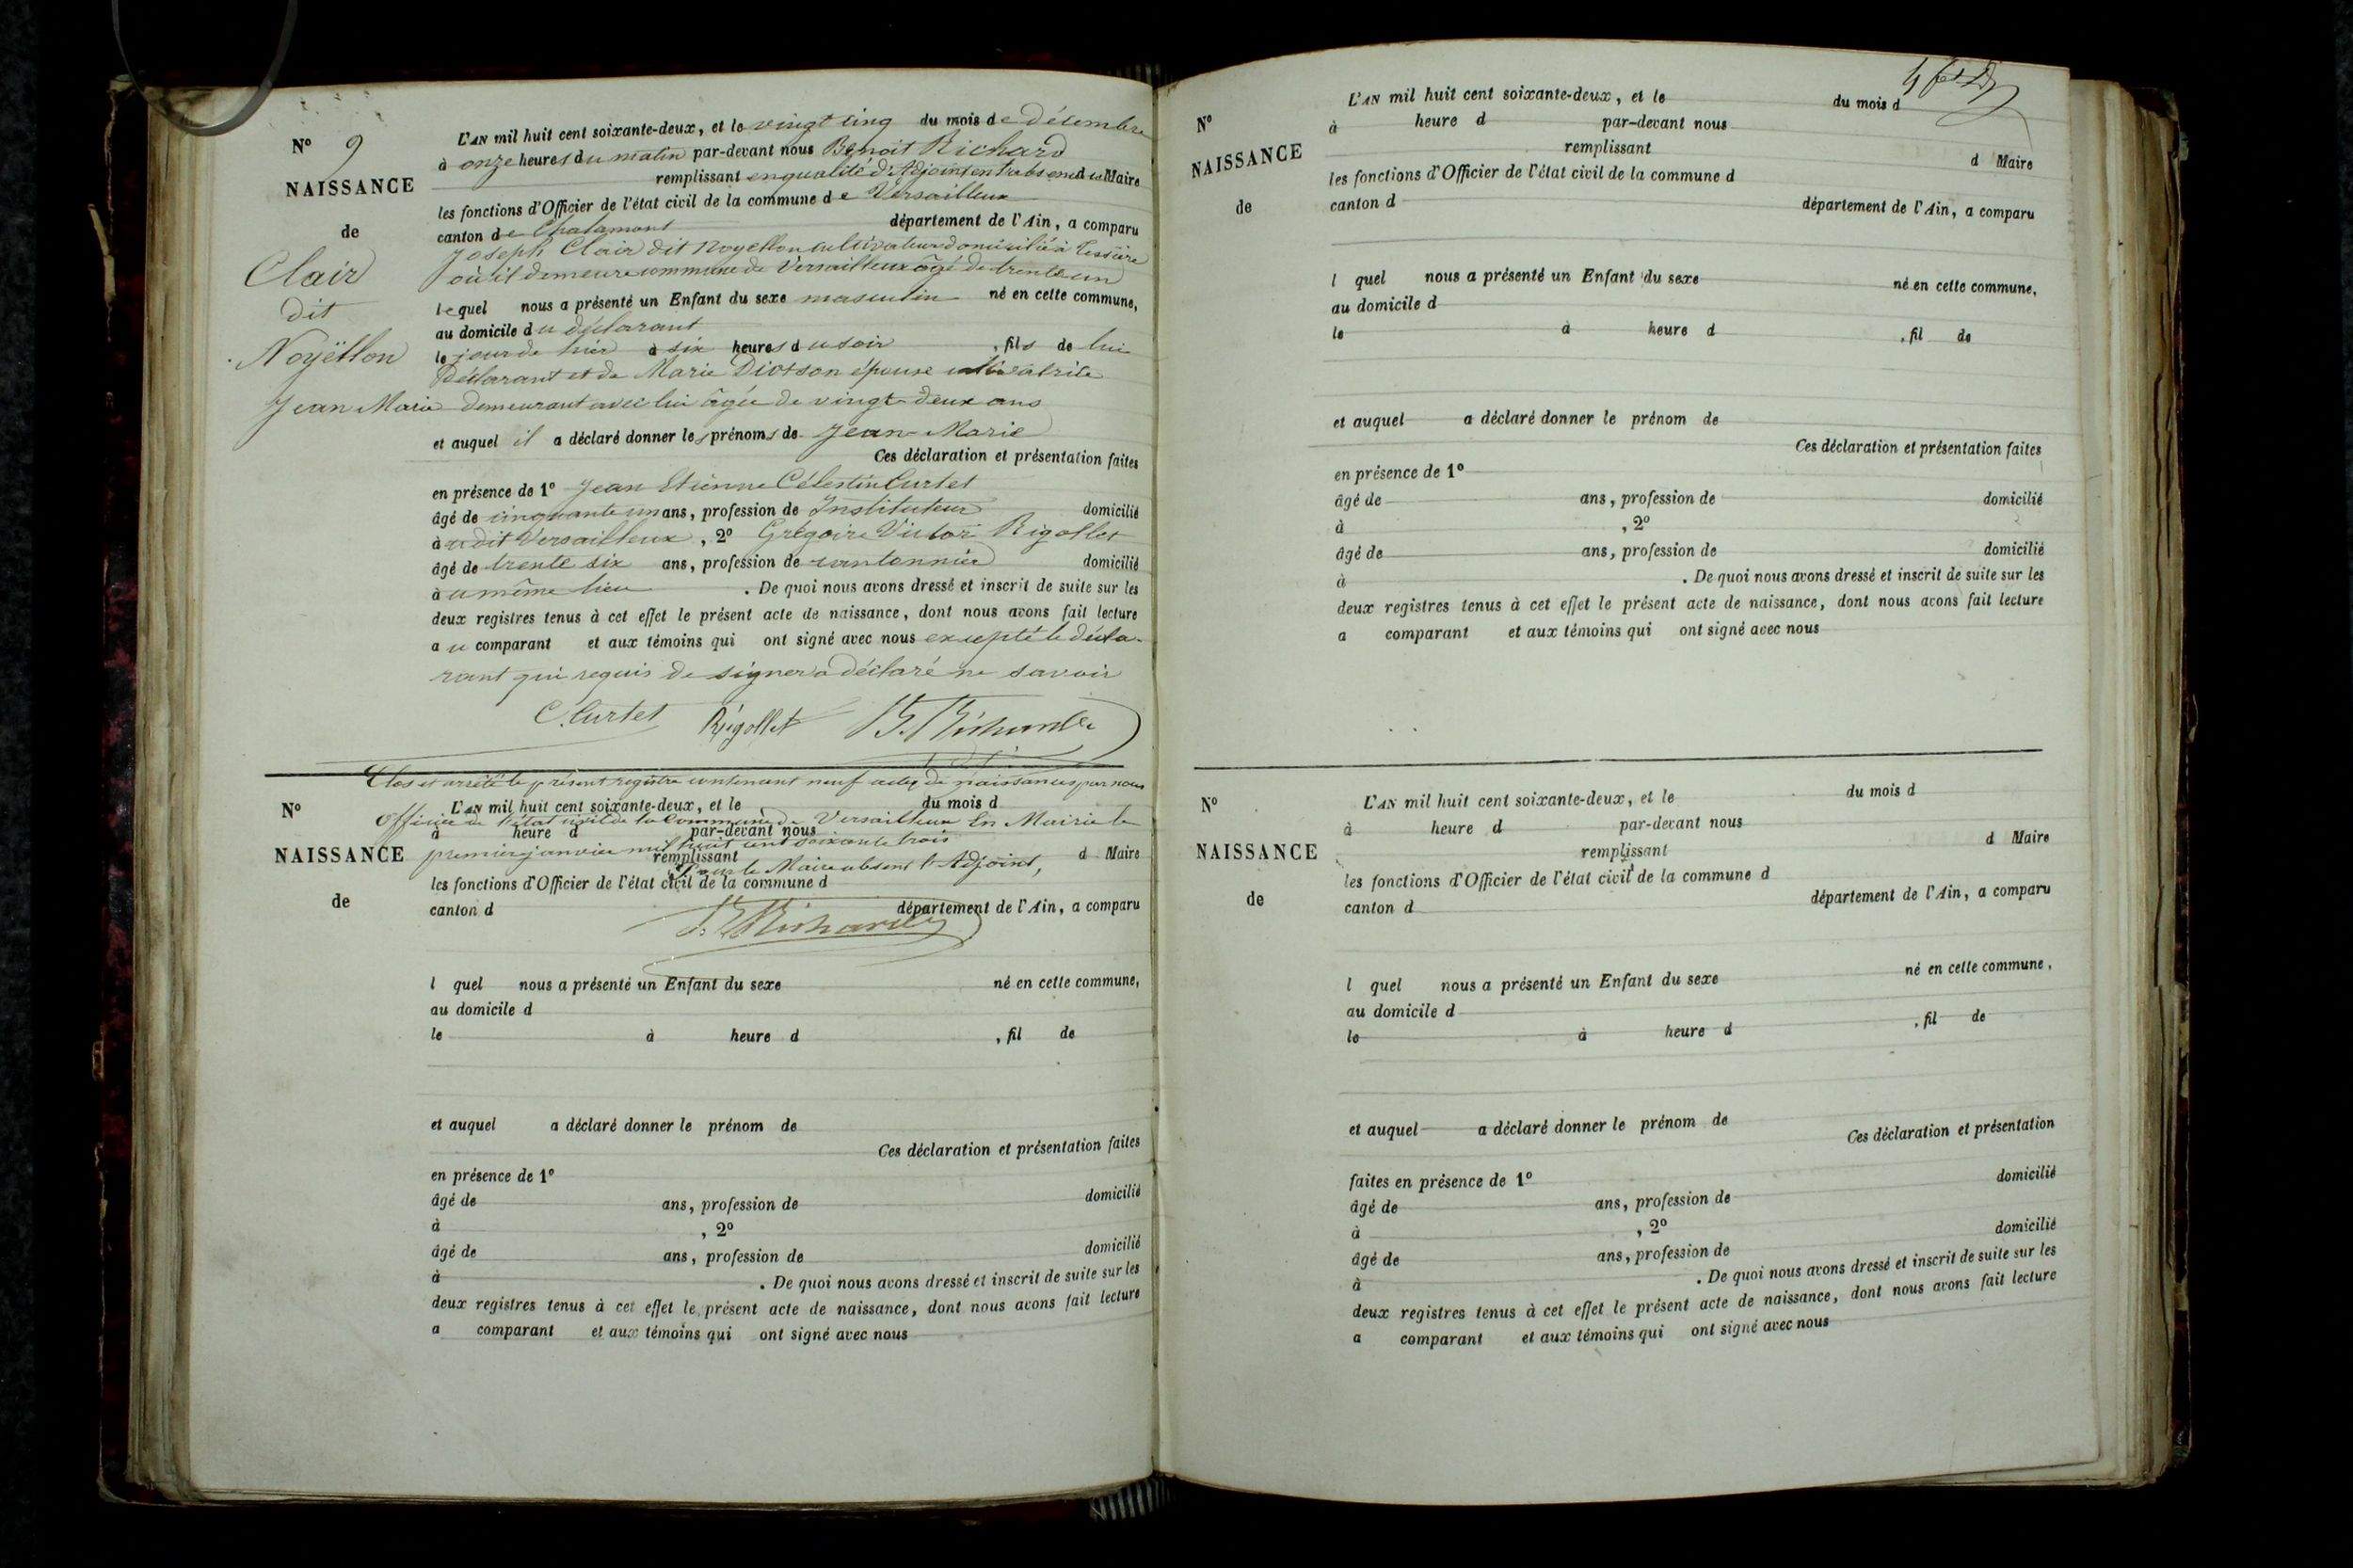 N° 9
NAISSANCE
de
Clair
dit
Noyëllon
Jean Marie
L'AN mil huit cent soixante-deux, et le vingt cinq du mois de décembre
à onze heures du matin par-devant nous Benoit Richard
remplissant en qualité d'Adjoint en l'absence du Maire
les fonctions d'Officier de l'état civil de la commune de Versailleux
canton de Chalamont département de l'Ain, a comparu
Joseph Clair dit Noyellon cultivateur domicilié à
où il demeure commune de Versailleux âgé de trente un
lequel nous a présenté un Enfant du sexe masculin né en cette commune,
au domicile du déclarant
le jour de hier à six heures du soir, fils de lui
Déclarant et de Marie épouse cultivatrice
demeurant avec lui âgée de vingt deux ans
et auquel il a déclaré donner les prénoms de Jean-Marie
Ces déclaration et présentation faites
en présence de 1° Jean Etienne Célestin Curtet
âgé de cinquante un ans, profession de Instituteur domicilié
à udit Versailleux, 2° Grégoire Victor Rigollet
âgé de trente six ans, profession de cantonnier domicilié
au même lieu. De quoi nous avons dressé et inscrit de suite sur les
deux registres tenus à cet effet le présent acte de naissance, dont nous avons fait lecture
au comparant et aux témoins qui ont signé avec nous excepté le décla-
rant qui requis de signer a déclaré ne savoir
C. Curtet Rigollet B. Richard
Clos et arrêté le présent registre contenant neuf actes de naissances par nous
Officier de l'état civil de la Commune de Versailleux En Mairie le
premier janvier mil huit cent soixante trois
Pour le Maire absent l'Adjoint,
B. Richard
N°
NAISSANCE
de
L'AN mil huit cent soixante-deux, et le du mois d
à heure d par-devant nous
remplissant d Maire
les fonctions d'Officier de l'état civil de la commune d
canton d département de l'Ain, a comparu
l quel nous a présenté un Enfant du sexe né en cette commune,
au domicile d
le à heure d , fil de
et auquel a déclaré donner le prénom de
Ces déclaration et présentation faites
en présence de 1°
âgé de ans, profession de domicilié
à , 2°
âgé de ans, profession de domicilié
à . De quoi nous avons dressé et inscrit de suite sur les
deux registres tenus à cet effet le présent acte de naissance, dont nous avons fait lecture
a comparant et aux témoins qui ont signé avec nous
N°
NAISSANCE
de
L'AN mil huit cent soixante-deux, et le du mois d
à heure d par-devant nous
remplissant d Maire
les fonctions d'Officier de l'état civil de la commune d
canton d département de l'Ain, a comparu
l quel nous a présenté un Enfant du sexe né en cette commune,
au domicile d
le à heure d , fil de
et auquel a déclaré donner le prénom de
Ces déclaration et présentation faites
en présence de 1°
âgé de ans, profession de domicilié
à , 2°
âgé de ans, profession de domicilié
à . De quoi nous avons dressé et inscrit de suite sur les
deux registres tenus à cet effet le présent acte de naissance, dont nous avons fait lecture
a comparant et aux témoins qui ont signé avec nous
N°
NAISSANCE
de
L'AN mil huit cent soixante-deux, et le du mois d
à heure d par-devant nous
remplissant d Maire
les fonctions d'Officier de l'état civil de la commune d
canton d département de l'Ain, a comparu
l quel nous a présenté un Enfant du sexe né en cette commune,
au domicile d
le à heure d , fil de
et auquel a déclaré donner le prénom de
Ces déclaration et présentation
faites en présence de 1° domicilié
âgé de ans, profession de
à , 2° domicilié
âgé de ans, profession de
à . De quoi nous avons dressé et inscrit de suite sur les
deux registres tenus à cet effet le présent acte de naissance, dont nous avons fait lecture
a comparant et aux témoins qui ont signé avec nous